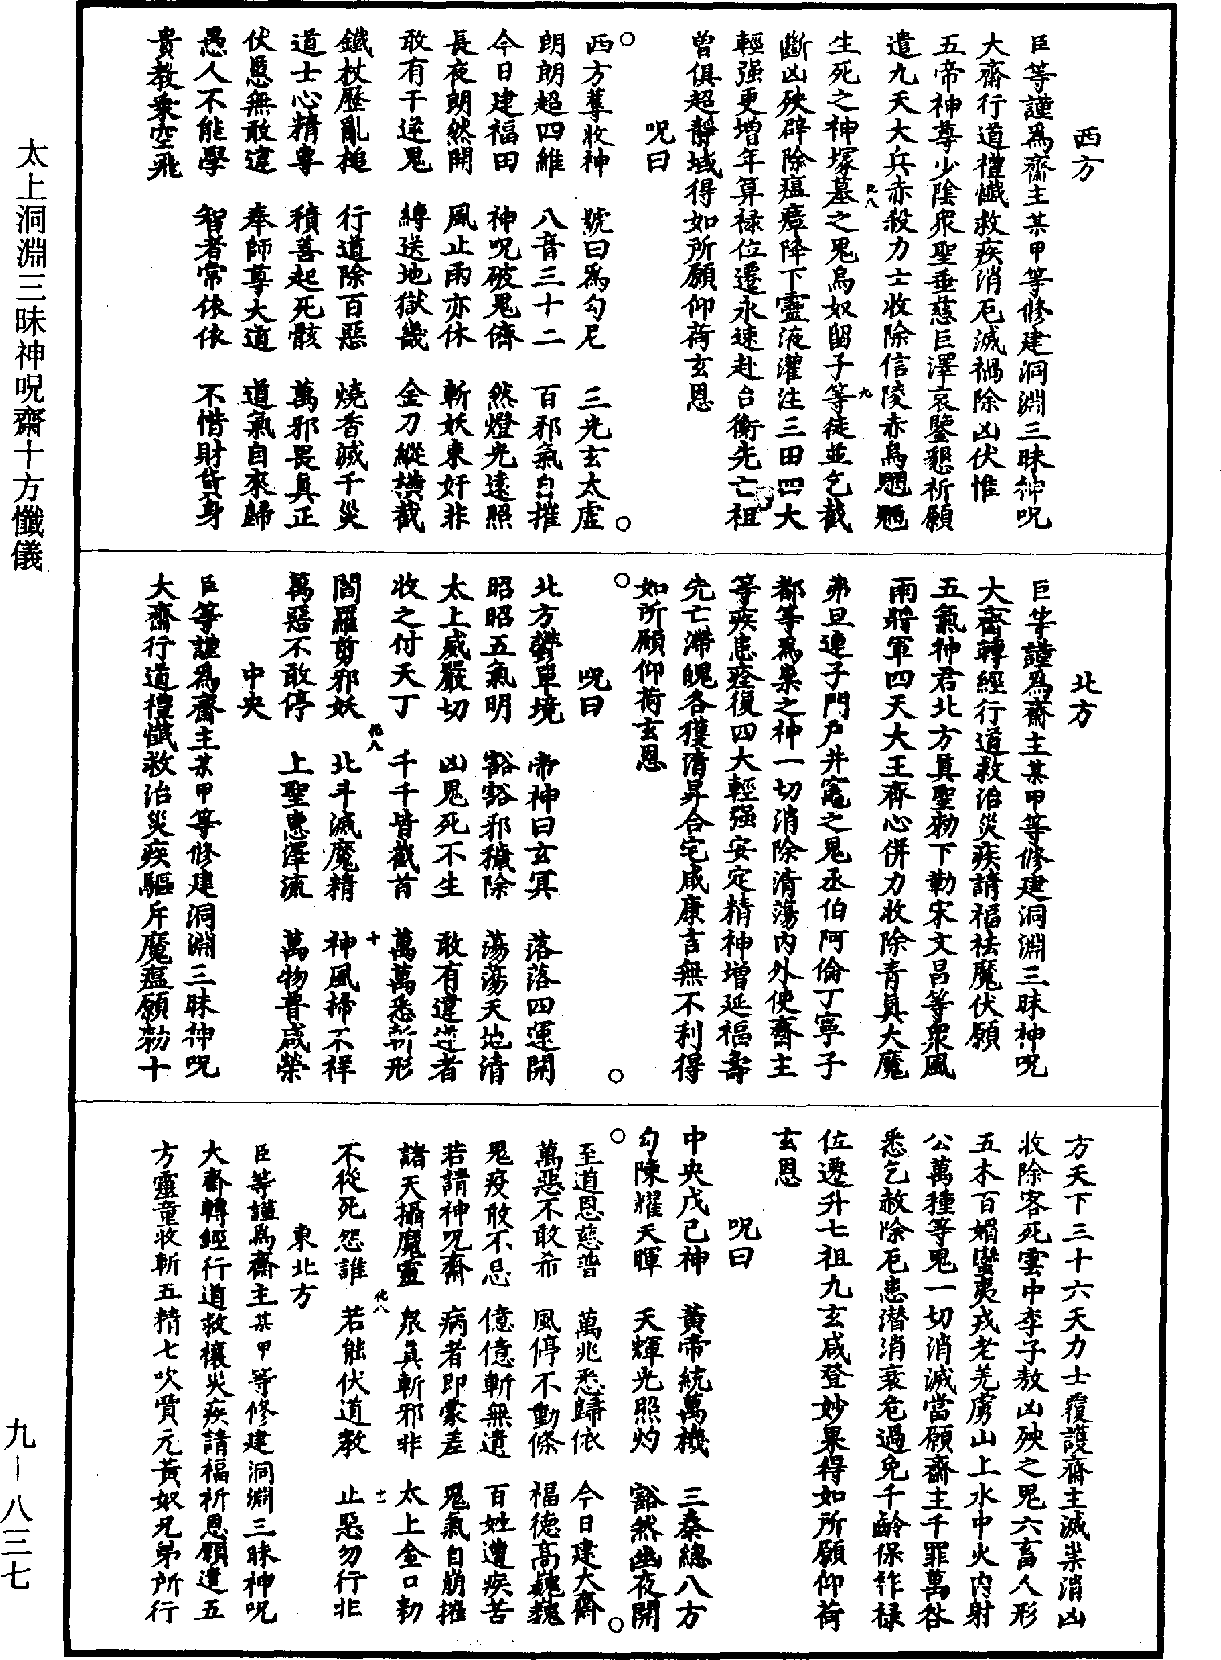 西方
臣等謹爲齋主某甲等修建洞淵三昧神呪
大齋行道禮懺救疾消厄滅禍除凶伏惟
五帝神尊少陰衆聖垂慈巨澤哀鑒懇祈願
遣九天大兵赤殺力士收除信陵赤烏魍魎
生死之神塚墓之鬼烏奴留子等徒並乞截
斷凶殃辟除瘟瘴降下靈液灌注三田四大
輕强更增年算禄位遷永速赴台衡先亡祖
曾俱超靜域得如所願仰荷玄恩
呪曰
西方蓐收神　號曰爲勾尼　三光玄太虛
朗朗超四維　八音三十二　百邪氣自摧
今日建福田　神呪破鬼儕　然燈光遠照
長夜朗然開　風止雨亦休　斬妖束奸非
敢有干逆鬼　縛送地獄畿　金刀縱橫截
鐵杖歷亂槌　行道除百惡　燒香滅千災
道士心精專　積善起死骸　萬邪畏真正
伏愿無敢違　奉師尊大道　道氣自來歸
愚人不能學　智者常依依　不惜財貨身
貴教乘空飛
北方
臣等謹爲齋主某甲等修建洞淵三昧神呪
大齋轉經行道救治災疾請福袪魔伏願
五氣神君北方真聖勑下勒宋文吕等衆風
雨將軍四天大王齊心併力收除青真大魔
弗旦連子門户井竈之鬼丞伯阿倫丁寧子
都等爲祟之神一切消除清蕩内外使齋主
等疾患痊復四大輕强安定精神增延福壽
先亡滯魄各獲清昇合宅咸康吉無不利得
如所願仰荷玄恩
呪曰
北方鬱單境　帝神曰玄冥　落落四運開
昭昭五氣明　豁豁邪穢除　蕩蕩天地清
太上威嚴切　凶鬼死不生　敢有違逆者
收之付天丁　千千皆截首　萬萬悉斬形
閻羅剪邪妖　北斗滅魔精　神風掃不祥
萬惡不敢停　上聖惠澤流　萬物普咸榮
中央
臣等謹爲齋主某甲等修建洞淵三昧神呪
大齋行道禮懺救治災疾驅斥魔瘟願勑十
方天下三十六天力士覆護齋主滅祟消凶
收除客死雲中李子敖凶殃之鬼六畜人形
五木百媚蠻夷戎老羌虜山上水中火内射
公萬種等鬼一切消滅當願齋主千罪萬咎
悉乞赦除厄患潛消衰危過免千齡保祚禄
位遷升七祖九玄咸登妙果得如所願仰荷
玄恩
呪曰
中央戊己神　黃帝統萬機　三秦總八方
勾陳耀天暉　天輝光照灼　豁然幽夜開
至道恩慈普　萬兆悉歸依　今日建大齋
萬惡不敢希　風停不動條　福德高巍巍
鬼疫敢不忌　億億斬無遺　百姓遭疾苦
若請神呪齋　病者即蒙差　鬼氣自崩摧
諸天攝魔靈　衆真斬邪非　太上金口勑
不從死怨誰　若能伏道教　止惡勿行非
東北方
臣等謹爲齋主某甲等修建洞淵三昧神呪
大齋轉經行道救禳災疾請福祈恩願遣五
方靈童收斬五精七吹賈元黃奴兄弟所行
太上洞淵三昧神呪齋十方懺儀
九—八三七